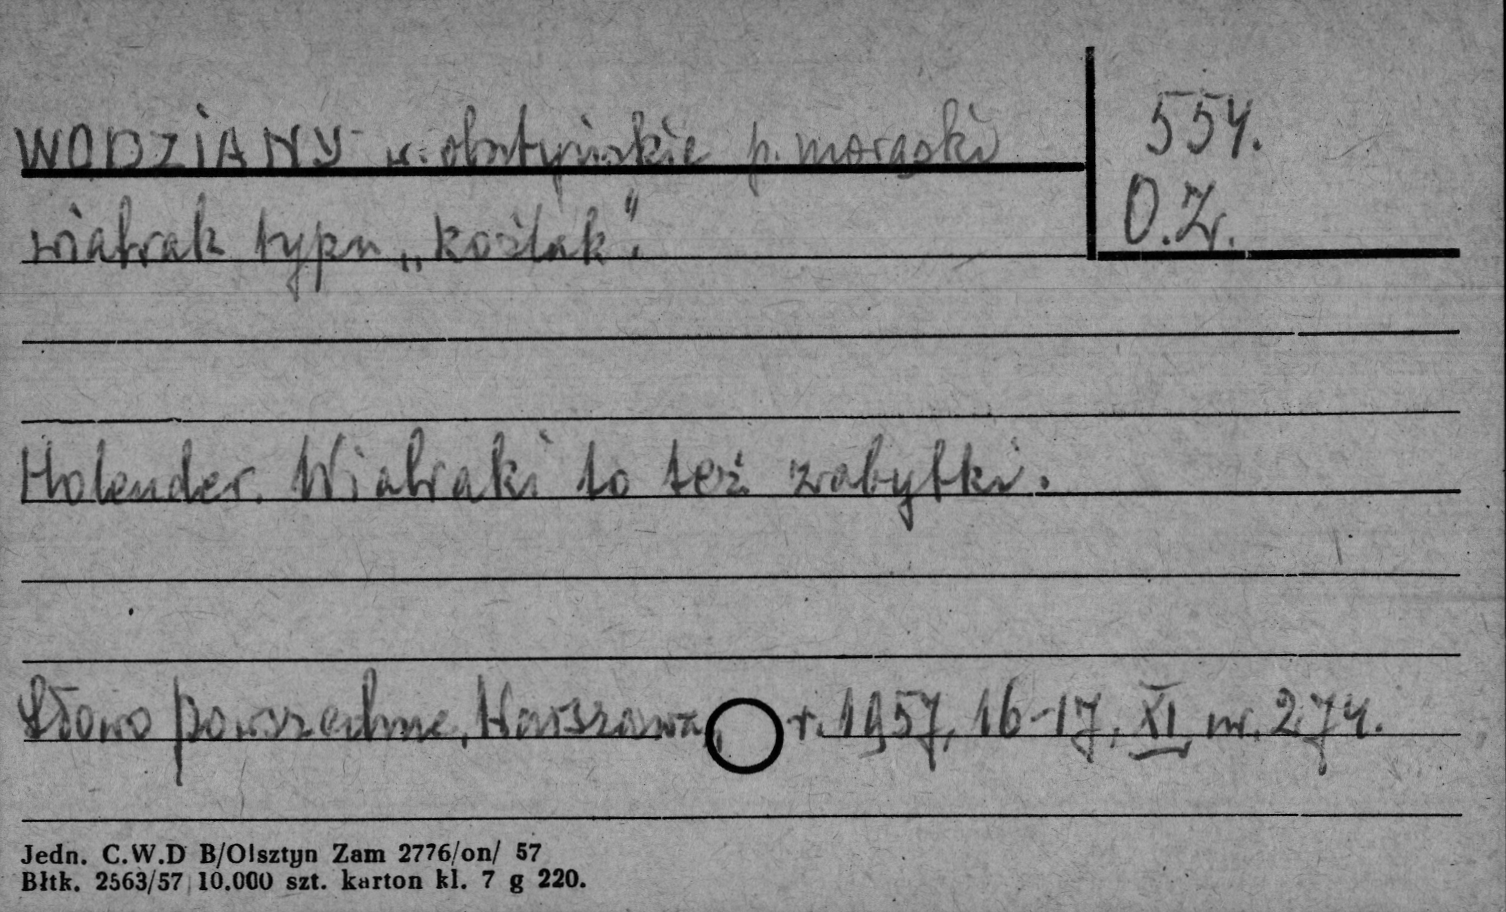 WODZIANY w. olsztyńskie p. morąski
554.
wiatrak typu „koźlak".
O.Z.
Holender. Wiatraki to też zabytki.
Słowo powszechne, Warszawa, r. 1957, 16-17, XI nr. 274.
Jedn. C.W.D B/Olsztyn Zam 2776/on/ 57
Błtk. 2563/57 10.000 szt. karton kl. 7 g 220.